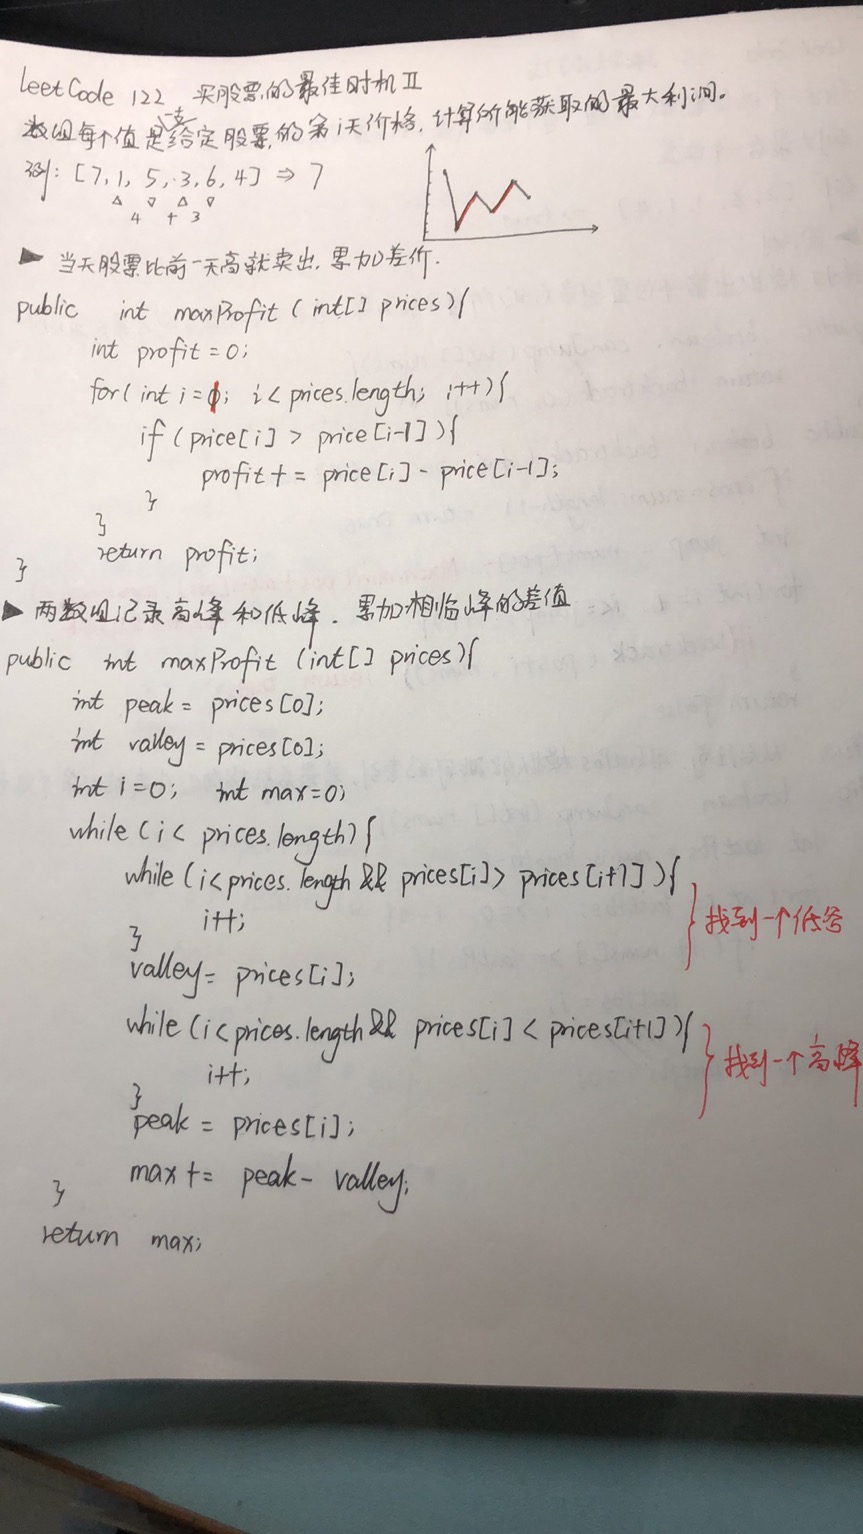 LeetCode 122 买股票的最佳时机 II
数组每个值是一支给定股票的第i天价格,计算所能获取的最大利润。
例: [7,1,5,3,6,4] ⇒ 7
4 + 3
▶ 当天股票比前一天高就卖出,累加差价.
public int maxProfit (int[] prices){
int profit = 0;
for(int i=1; i<prices.length; i++){
if (price[i] > price[i-1]){
profit += price[i] - price[i-1];
}
}
return profit;
}
▶ 两数组记录高峰和低峰. 累加相临峰的差值
public int maxProfit (int[] prices){
int peak = prices[0];
int valley = prices[0];
int i=0; int max=0;
while (i < prices.length){
while (i<prices.length && prices[i]> prices[i+1]){
i++;
}
找到一个低谷
valley = prices[i];
while (i<prices.length && prices[i] < prices[i+1]){
i++;
}
找到一个高峰
peak = prices[i];
max += peak - valley;
}
return max;